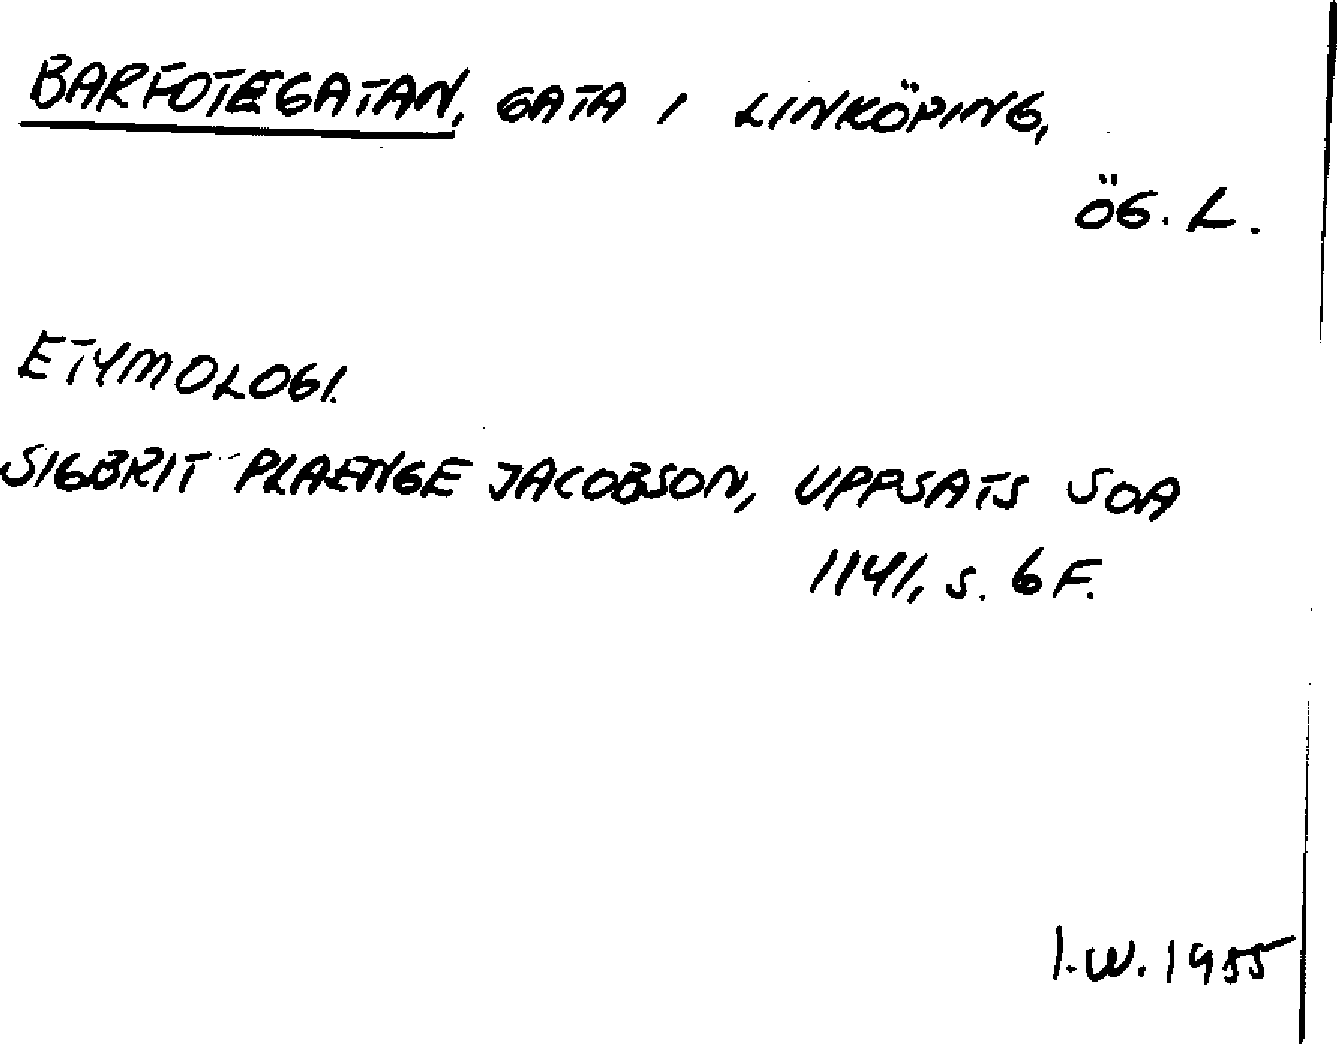 BARFOTEGATAN, GATA I LINKÖPING,
ÖG. L.
ETYMOLOGI.
SIGBRIT PLAENGE JACOBSON, UPPSATS SOA
1141, S. 6 F.
I.W. 1955